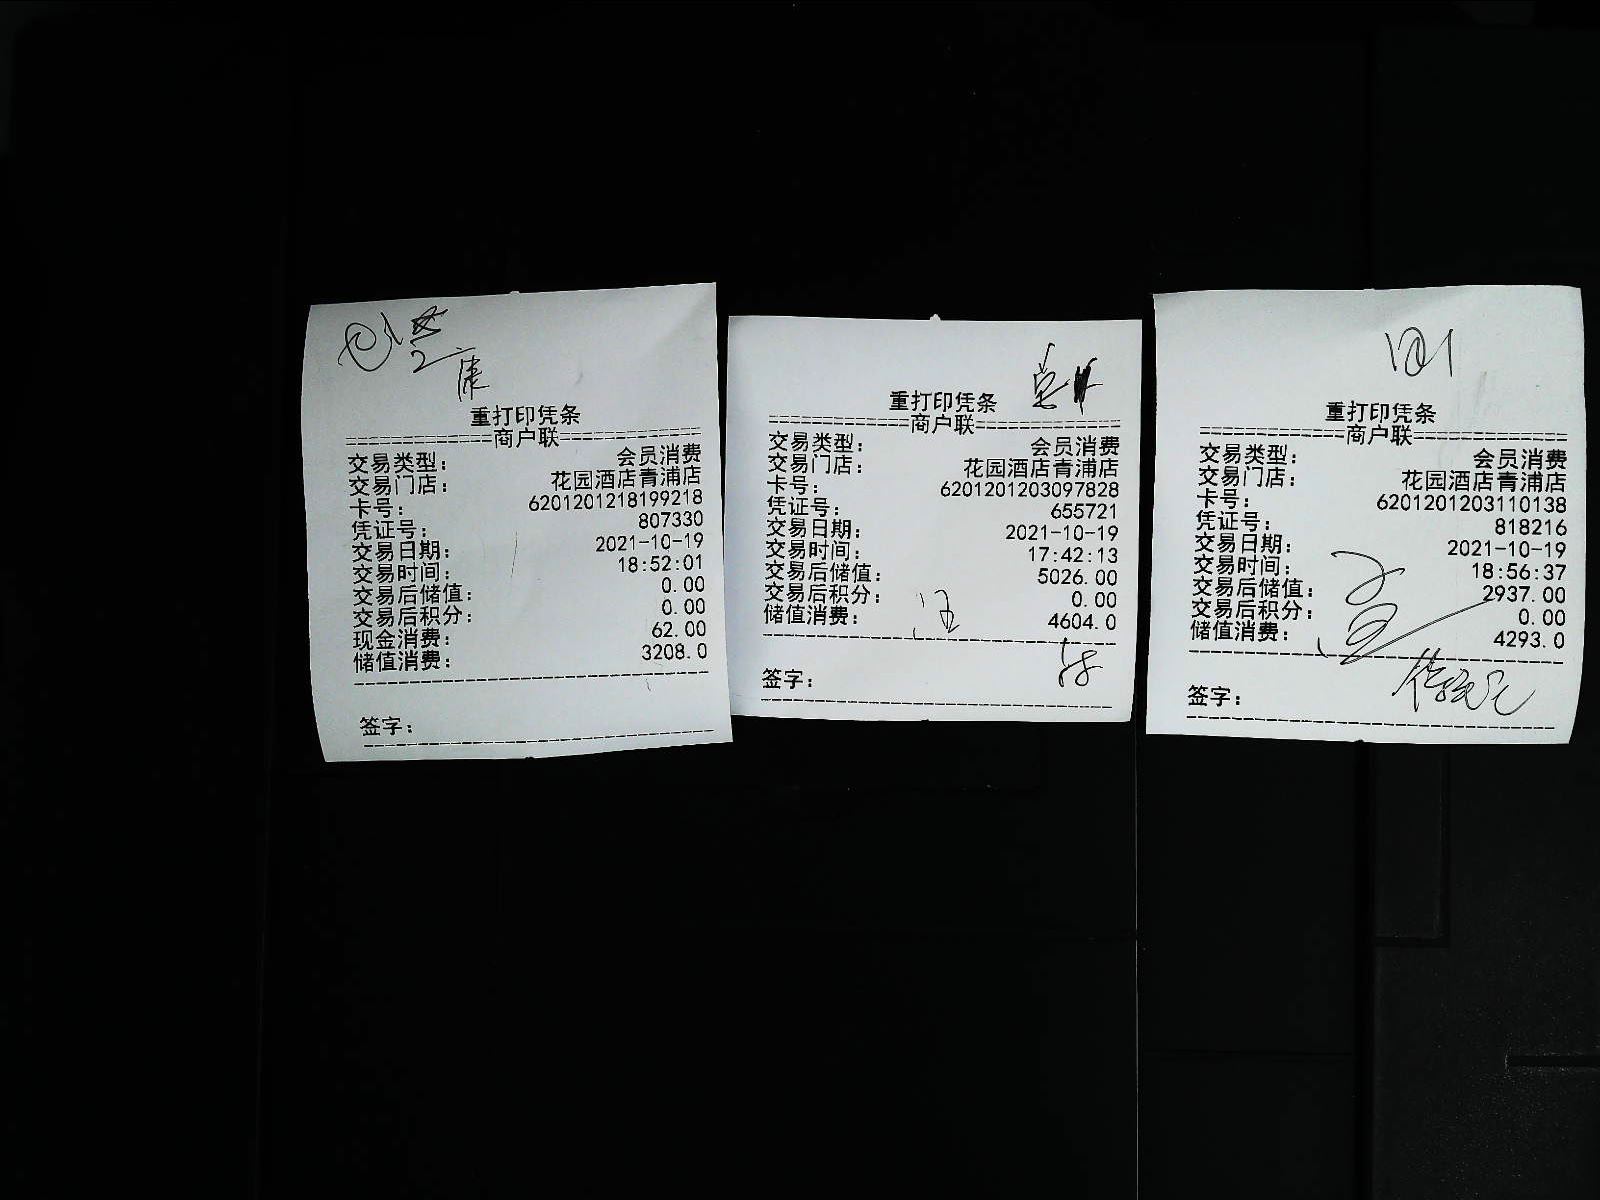 重打印凭条
商户联
交易类型： 会员消费
交易门店： 花园酒店青浦店
卡号： 6201201218199218
凭证号： 807330
交易日期： 2021-10-19
交易时间： 18:52:01
交易后储值： 0.00
交易后积分： 0.00
现金消费： 62.00
储值消费： 3208.0
签字：
重打印凭条
商户联
交易类型： 会员消费
交易门店： 花园酒店青浦店
卡号： 6201201203097828
凭证号： 655721
交易日期： 2021-10-19
交易时间： 17:42:13
交易后储值： 5026.00
交易后积分： 0.00
储值消费： 4604.0
签字：
重打印凭条
商户联
交易类型： 会员消费
交易门店： 花园酒店青浦店
卡号： 6201201203110138
凭证号： 818216
交易日期： 2021-10-19
交易时间： 18:56:37
交易后储值： 2937.00
交易后积分： 0.00
储值消费： 4293.0
签字：